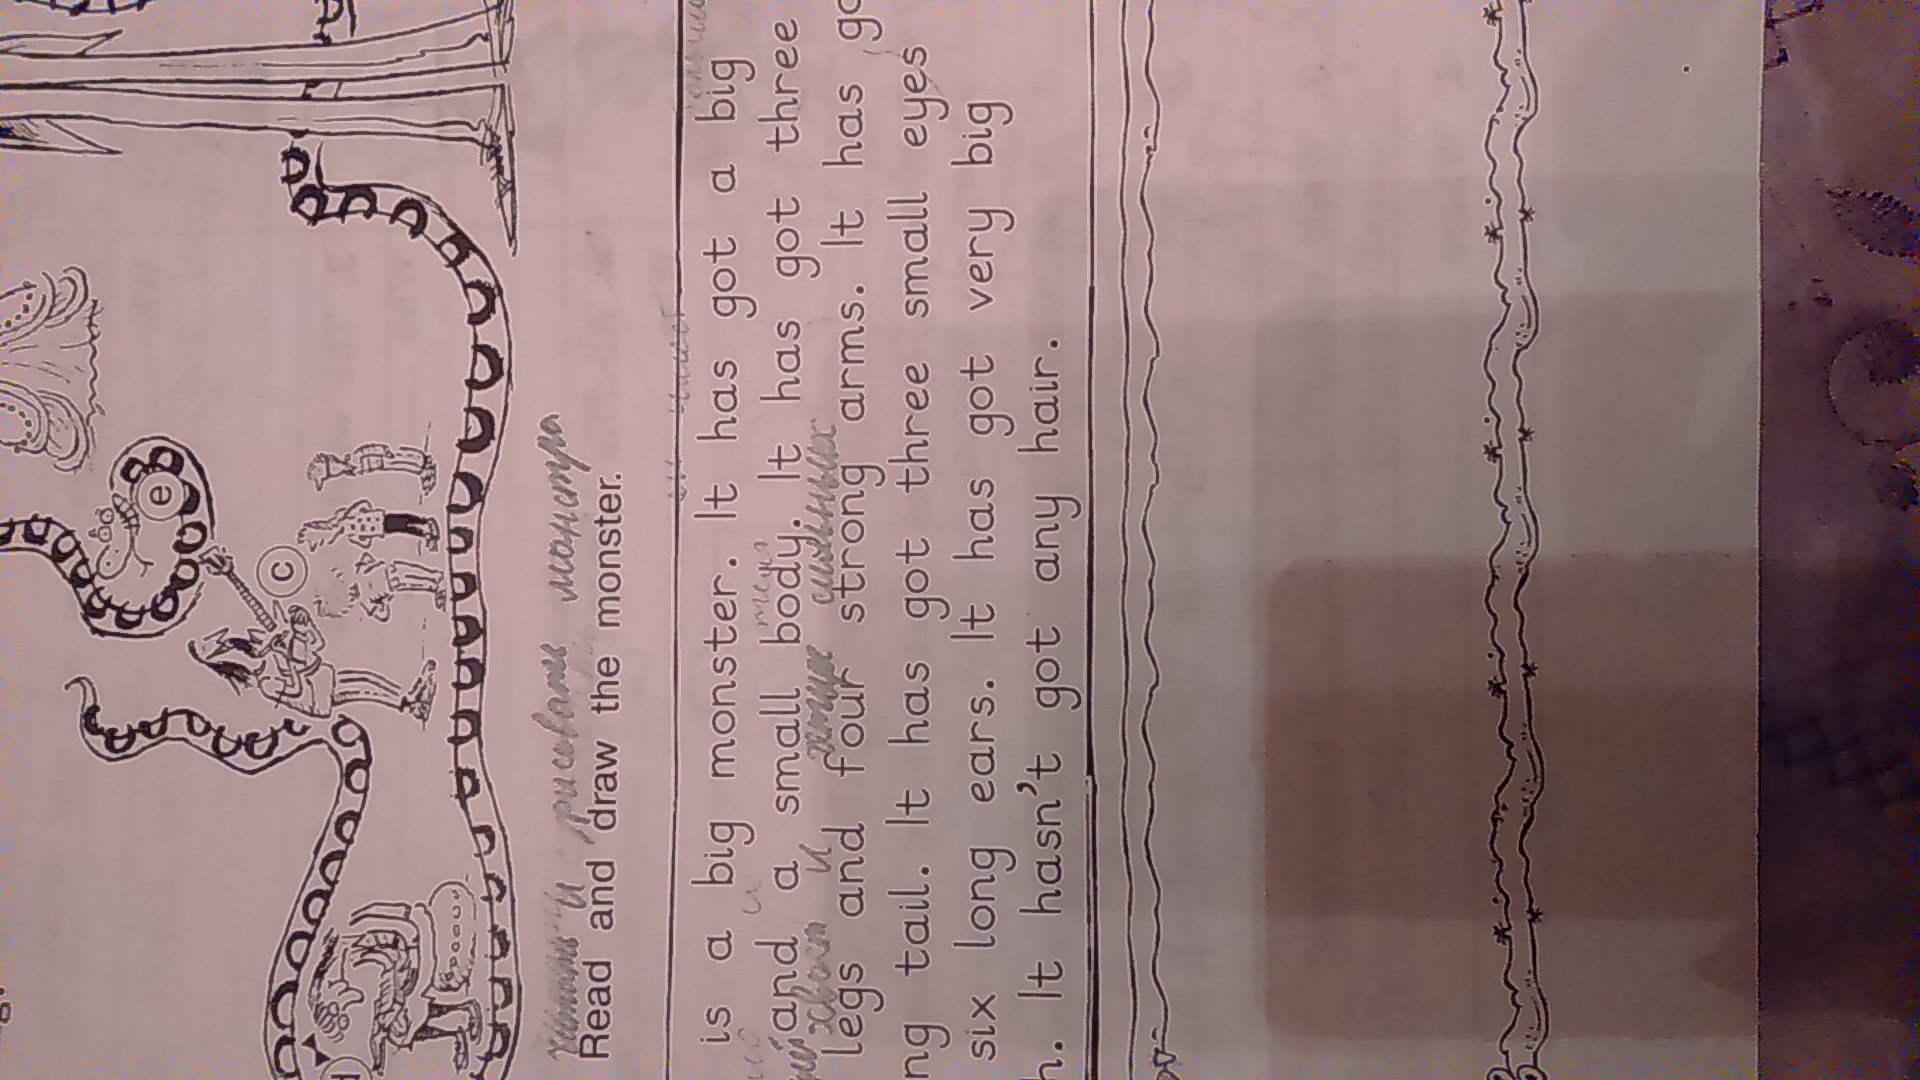 e
c
d
читать и рисовать монстра
Read and draw the monster.
is a big monster. It has got a big
and a small body. It has got three
хвост и четыре сильных
legs and four strong arms. It has go
ng tail. It has got three small eyes
six long ears. It has got very big
h. It hasn't got any hair.